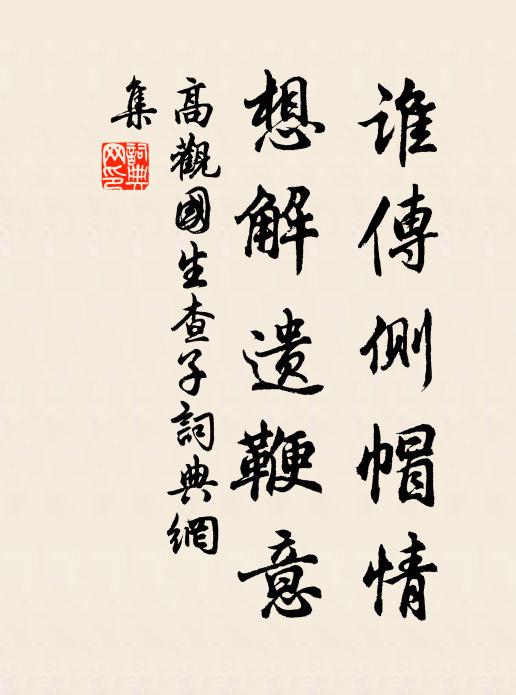 誰傳側帽情
想解遺鞭意
高觀國生查子詞典網
集
詞典
网印